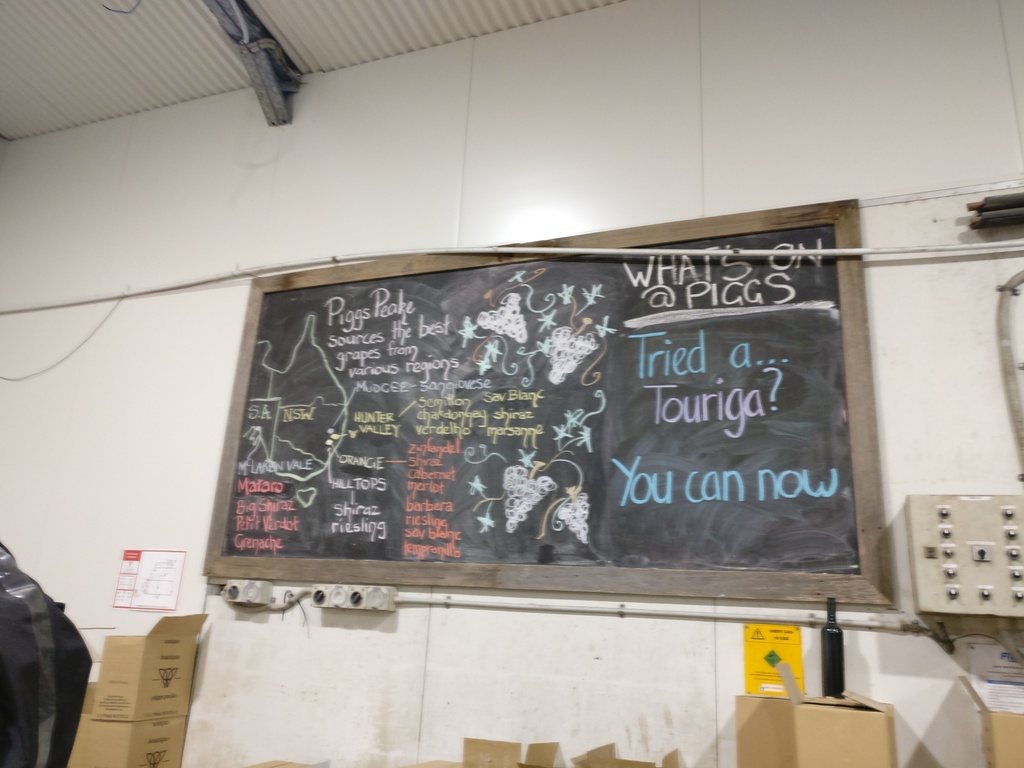 Piggs Peake
sources the best
grapes from
various regions
MUDGEE - Sangiovese
S.A
NSW
HUNTER
VALLEY
Semillon Sav Blanc
chardonnay shiraz
verdelho marsanne
ORANGE
zinfandel
shiraz
cabernet
merlot
barbera
riesling
sav blanc
tempranillo
HILLTOPS
shiraz
riesling
McLAREN VALE
Mataro
Big Shiraz
Petit Verdot
Grenache
WHAT'S ON
@ PIGGS
Tried a...
Touriga?
You can now